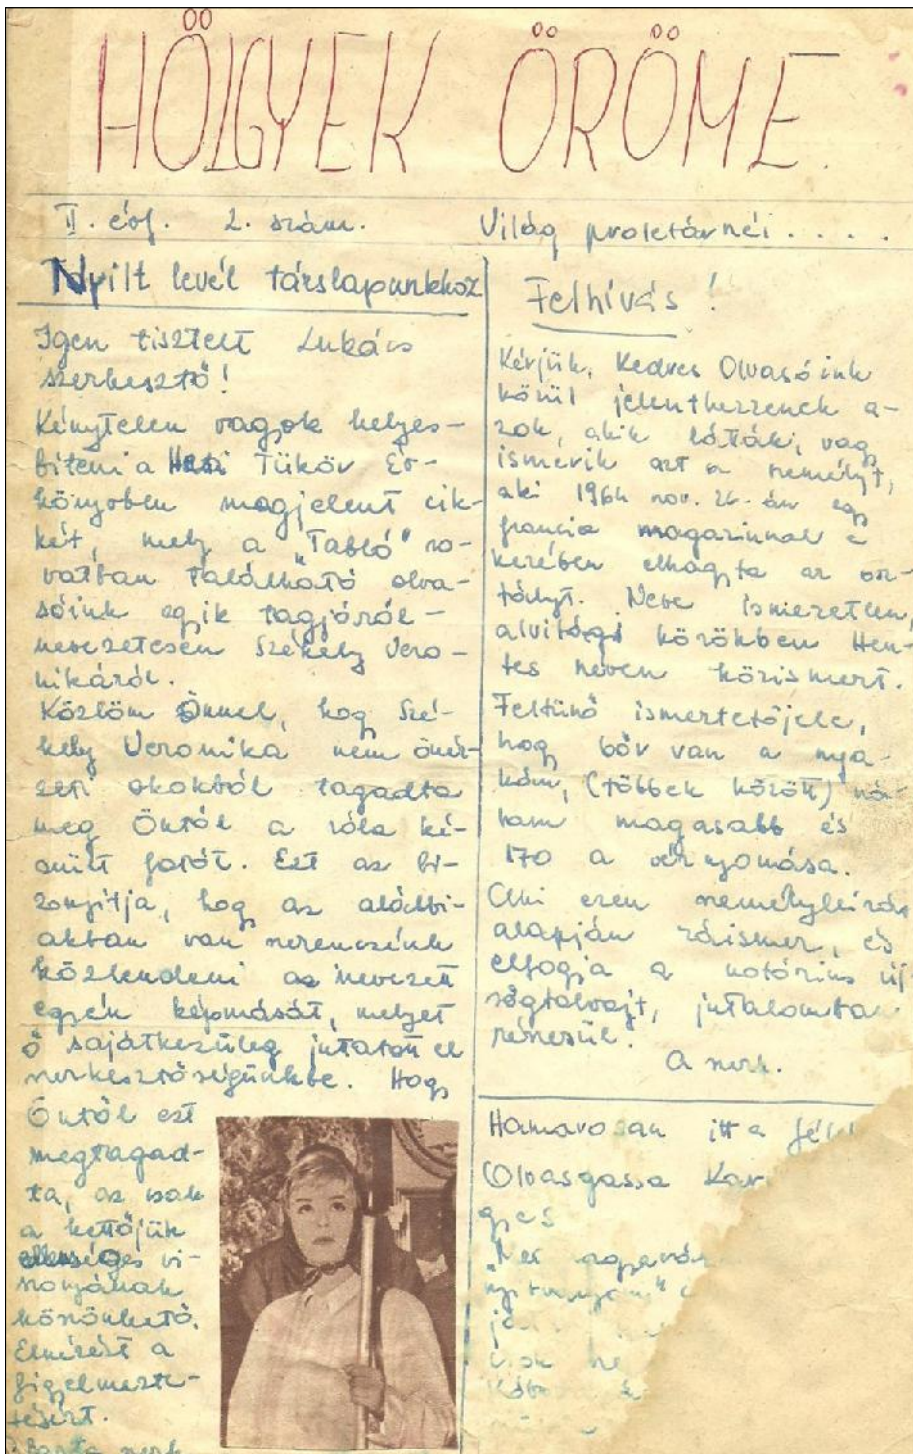 HÖLGYEK ÖRÖME.
II. évf. 2. szám. Világ proletárnéi . . . .
Nyilt levél társlapunkhoz
Igen tisztelt Lukács
szerkesztő!
Kénytelen vagyok helyes-
biteni a Heti Tükör Év-
könyvben megjelent cik-
két, mely a "Tabló" ro-
vatban található olva-
sóink egyik tagjáról -
nevezetesen Székely Vero-
nikáról.
Közlöm Önnel, hogy Szé-
kely Veronika nem önér-
zeti okokból tagadta
meg Öntől a róla ké-
szült fotót. Ezt az bi-
zonyitja, hogy az alábbi-
akban van szerencsénk
közlendeni az nevezett
egyén képmását, melyet
ő sajátkezüleg juttatott el
szerkesztőségünkbe. Hogy
Öntől ezt
megtagad-
ta, az csak
a kettőjük
ellenséges vi-
szonyának
köszönhető.
Elnézést a
figyelmezte-
tésért.
szerk
Felhívás!
Kérjük, Kedves Olvasóink
közül jelentkezzenek a-
zok, akik látták, vagy
ismerik azt a személyt,
aki 1964 nov. 26-án egy
francia magazinnal a
kezében elhagyta az osz-
tályt. Neve ismeretlen,
alvilági körökben Hen-
tes néven közismert.
Feltünő ismertetőjele,
hogy bőr van a nya-
kán, (többek között) ná-
lam magasabb és
170 a vérnyomása.
Aki ezen személyleirás
alapján ráismer, és
elfogja a notórius uj-
ságtolvajt, jutalomban
részesül.
A szerk.
Hamarosan itt a
Olvasgassa